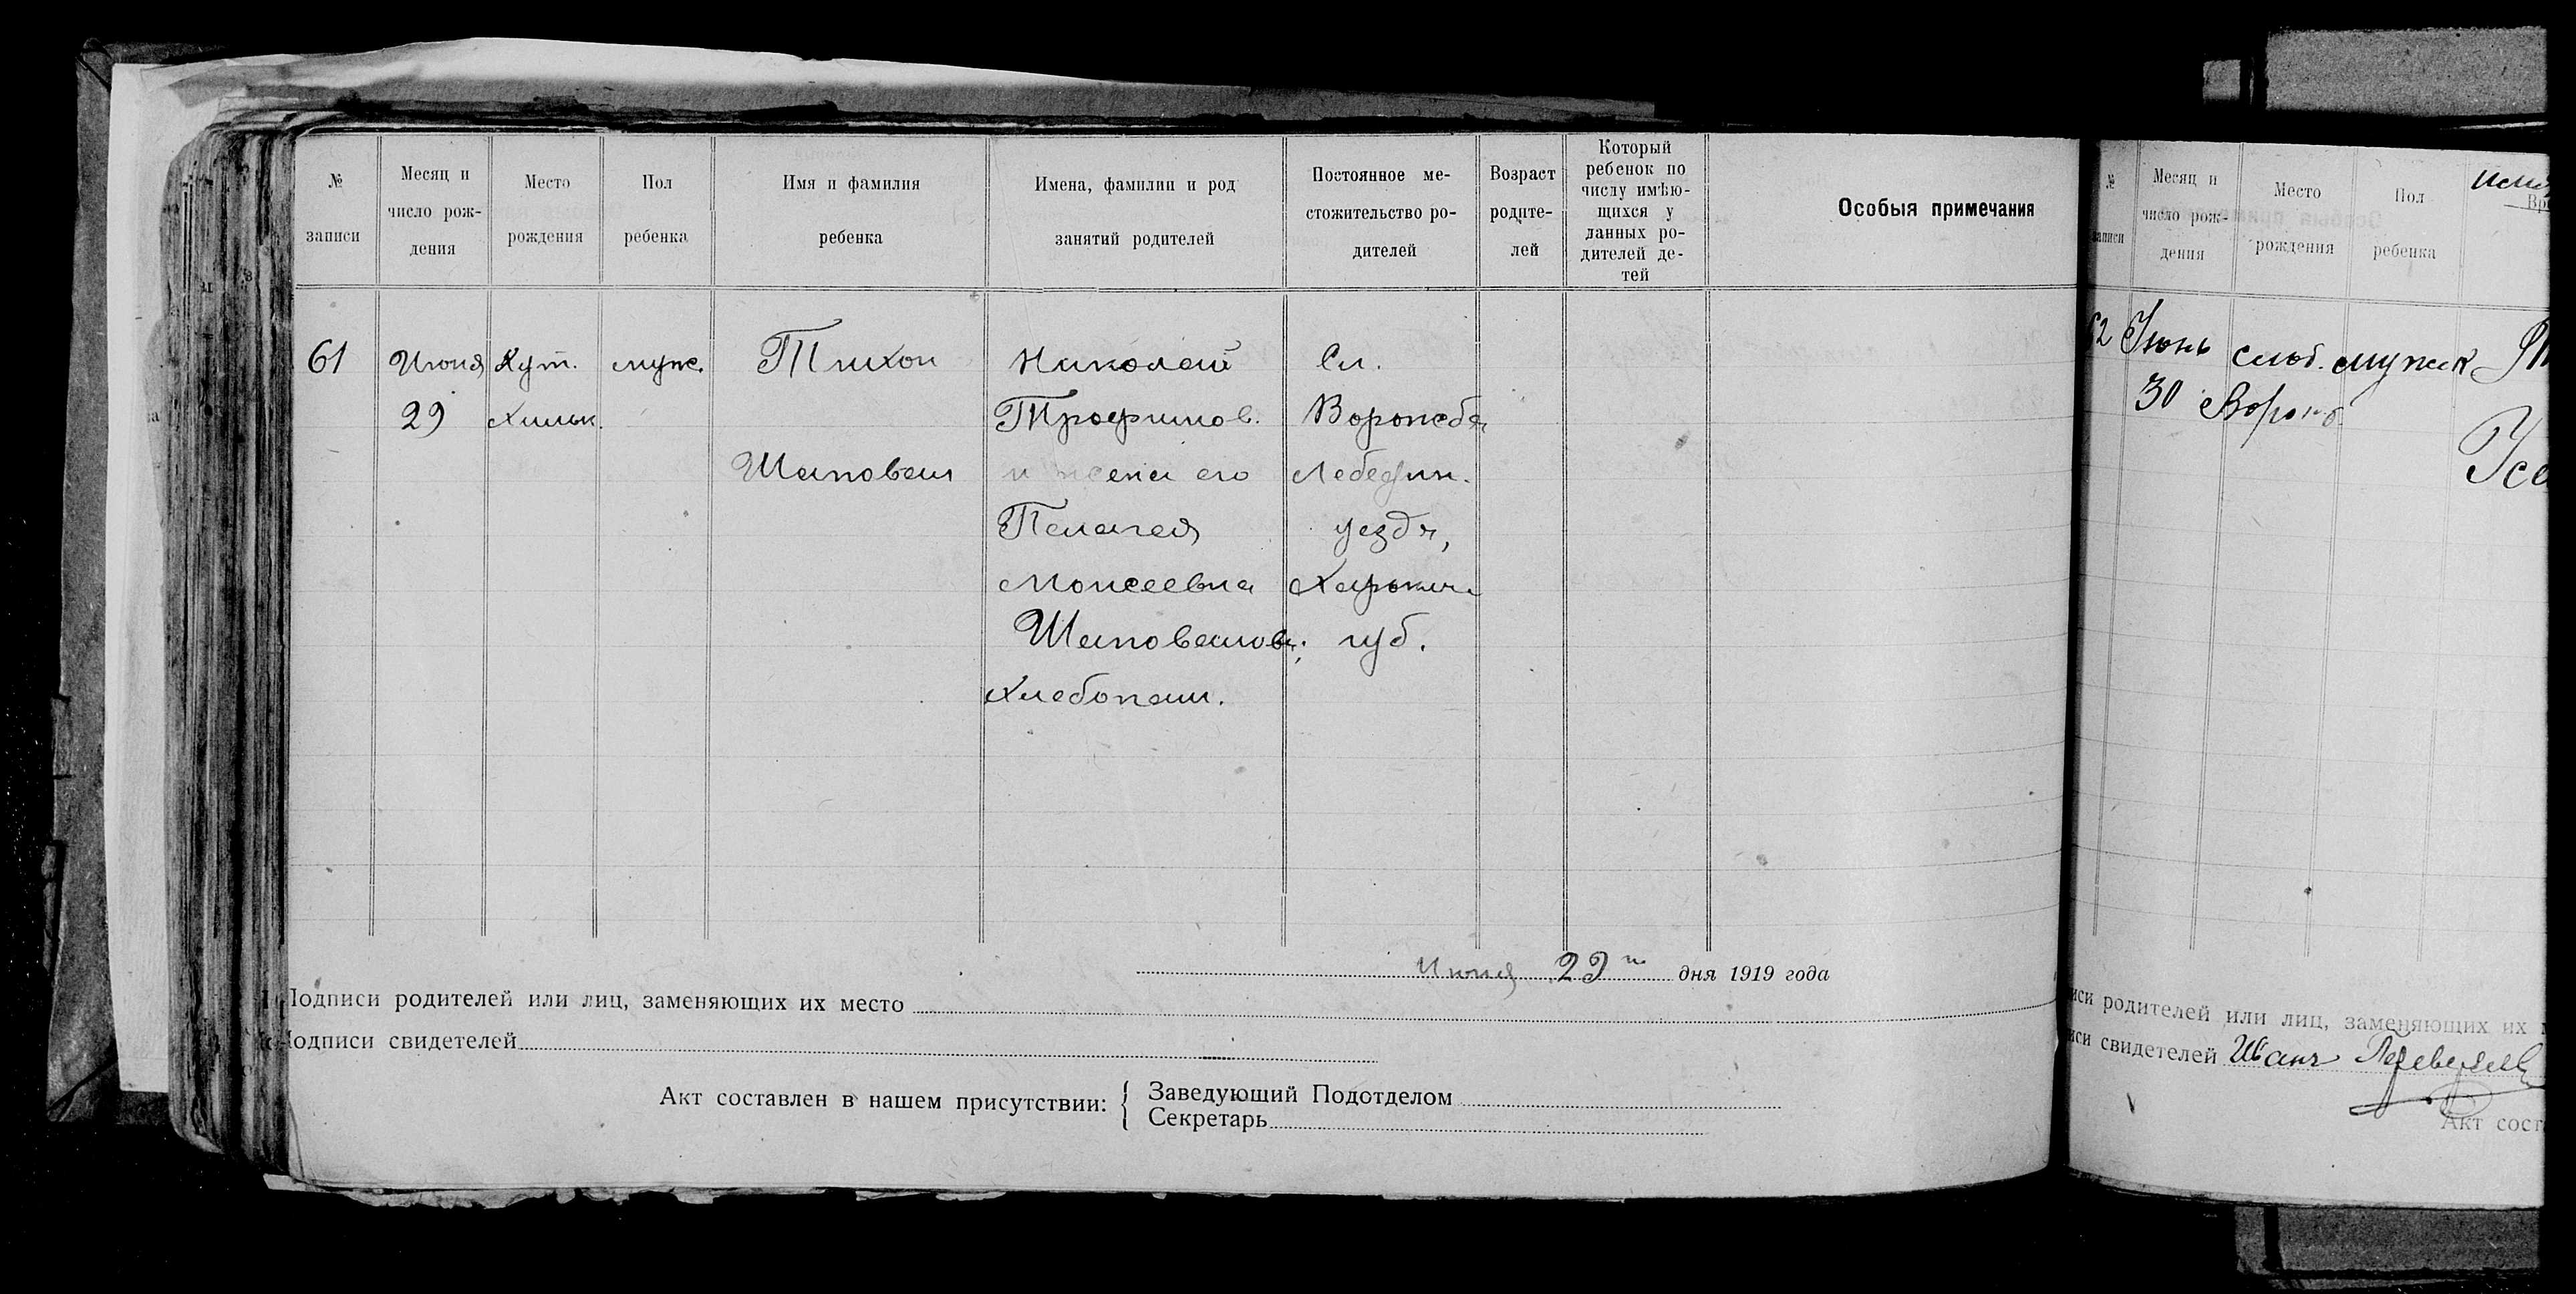 № записи
Месяц и число рождения
Место рождения
Пол ребенка
Имя и фамилия ребенка
Имена, фамилии и род занятий родителей
Постоянное местожительство родителей
Возраст родителей
Который ребенок по числу имѣющихся у данных родителей детей
Особыя примечания
61
Июня
29
Хут.
Хильк.
муж.
Тихон
Шаповал
Николай
Трофимов.
и жена его
Пелагея
Моисеевна
Шаповаловы;
Хлебопаш.
Сл.
Ворожба
Лебедин.
уезда,
Харьк.
губ.
Июня 29 го дня 1919 года
Подписи родителей или лиц, заменяющих их место
Подписи свидетелей
Акт составлен в нашем присутствии:
Заведующий Подотделом
Секретарь
№ записи
Месяц и число рождения
Место рождения
Пол ребенка
62
Июнь
30
слоб.
Ворожб.
мужск
Усе
иси родителей или лиц, заменяющих их
иси свидетелей Иван
Акт сост